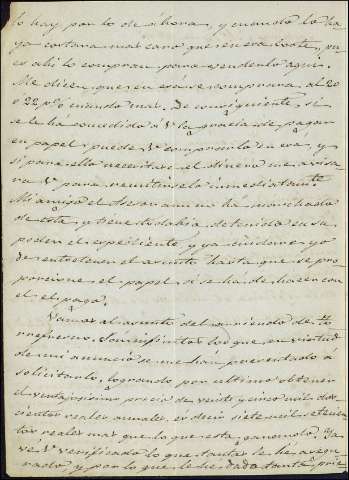 lo hay por lo de ahora, y cuando lo ha-
ya costara mas caro que en esa corte, pu-
es ahi lo compran para venderlo aqui.
Me dicen que en esa se comprara al 20
o 22 p% cuando mas. De consiguiente, si
se le há concedido á V. la gracia de pagar
en papel puede V. comprarlo en esa, y
si para ello necesitase el dinero me avisa-
ra V. para remitirselo inmediatamte.
Mi amigo el Asesor aun no há marchado
de esta, y tiene todabia detenido en su
poder el expediente y ya cuidare yo
de entretener el asunto hasta que se pro-
porcione el papel si se ha de hacer con
el el pago.
Vamos al asunto del arriendo de To
rrefresno. Son infinitos los que en virtud
de mi anuncio se me han presentado á
solicitarlo, logrando por ultimo obtener
el ventajosisimo precio de veinte y cinco mil dos-
cientos reales anuales, es decir siete mil
tos reales mas que lo que esta ganando. Ya
vé V. verificado lo que tantas le he asegu-
rado y por lo que le he dado tanta prie-